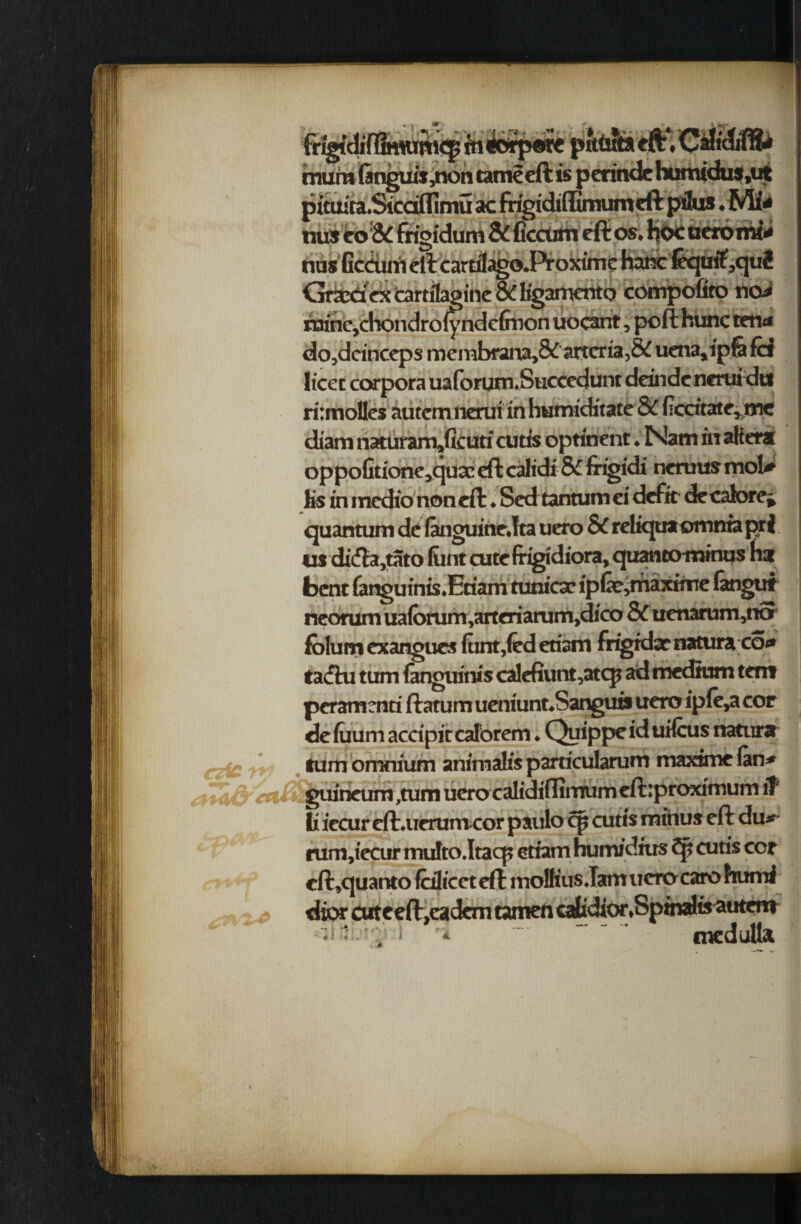 frigidissimumq; in corpore pituita est. Calidissi-
mum sanguis, non tamē est is perinde humidus, ut
pituita. Siccissimū ac frigidissimum est pilus. Mi-
nus eo & frigidum & siccum est os. hoc uero mi-
nus siccum est cartilago. Proxime hanc sequit̃, quē
Græci ex cartilagine & ligamento composito no-
mine, chondrosyndesmon uocant, post hunc ten-
do, deinceps membrana, & arteria, & uena, ipsa sci
licet corpora uasorum. Succedunt deinde nerui du
ri: molles autem nerui in humiditate & siccitate, me
diam naturam, sicuti cutis optinent. Nam in altera
oppositione, quæ est calidi & frigidi neruus mol-
lis in medio non est. Sed tantum ei desit de calore,
quantum de sanguine. Ita uero & reliqua omnia pri
us dicta, tāto sunt cute frigidiora, quanto minus ha
bent sanguinis. Etiam tunicæ ipsæ, maxime sangui
neorum uasorum, arteriarum, dico & uenarum, nō
solum exangues sunt, sed etiam frigidæ natura cō-
tactu tum sanguinis calefiunt, atq; ad medium tem
peramenti statum ueniunt. Sanguis uero ipse, a cor
de suum accipit calorem. Quippe id uiscus natura
tum omnium animalis particularum maxime san-
guineum, tum uero calidissimum est: proximum il
li iecur est. uerum cor paulo q̃ cutis minus est du-
rum, iecur multo. Itaq; etiam humidius q̃ cutis cor
est, quanto scilicet est mollius. Iam uero caro humi
dior cute est, eadem tamen calidior. Spinalis autem
medulla